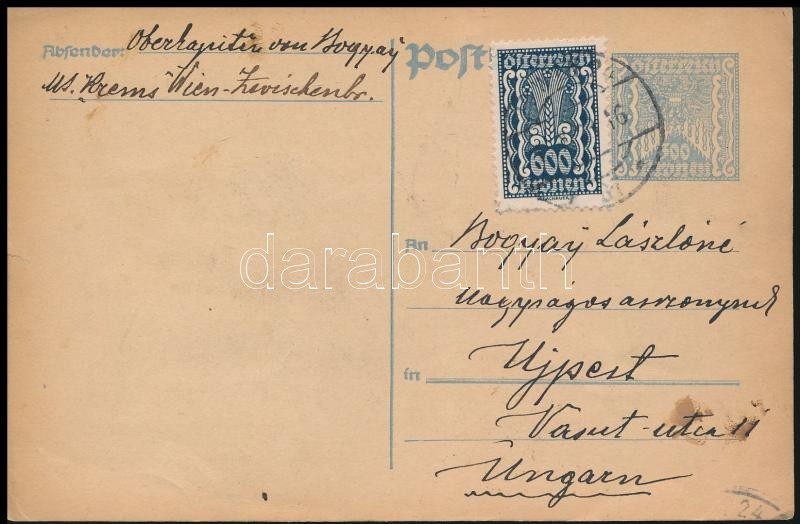 Absender: Oberkapitän von Bogyay
MS. "Krems" Wien-Zwischenbr.
Post
österreich
600
Kronen
österreich
Kronen
darabanth
An Bogyay Lászlóné
Nagyságos asszonynak
in Ujpest
Vasut-utca 11
Ungarn
24